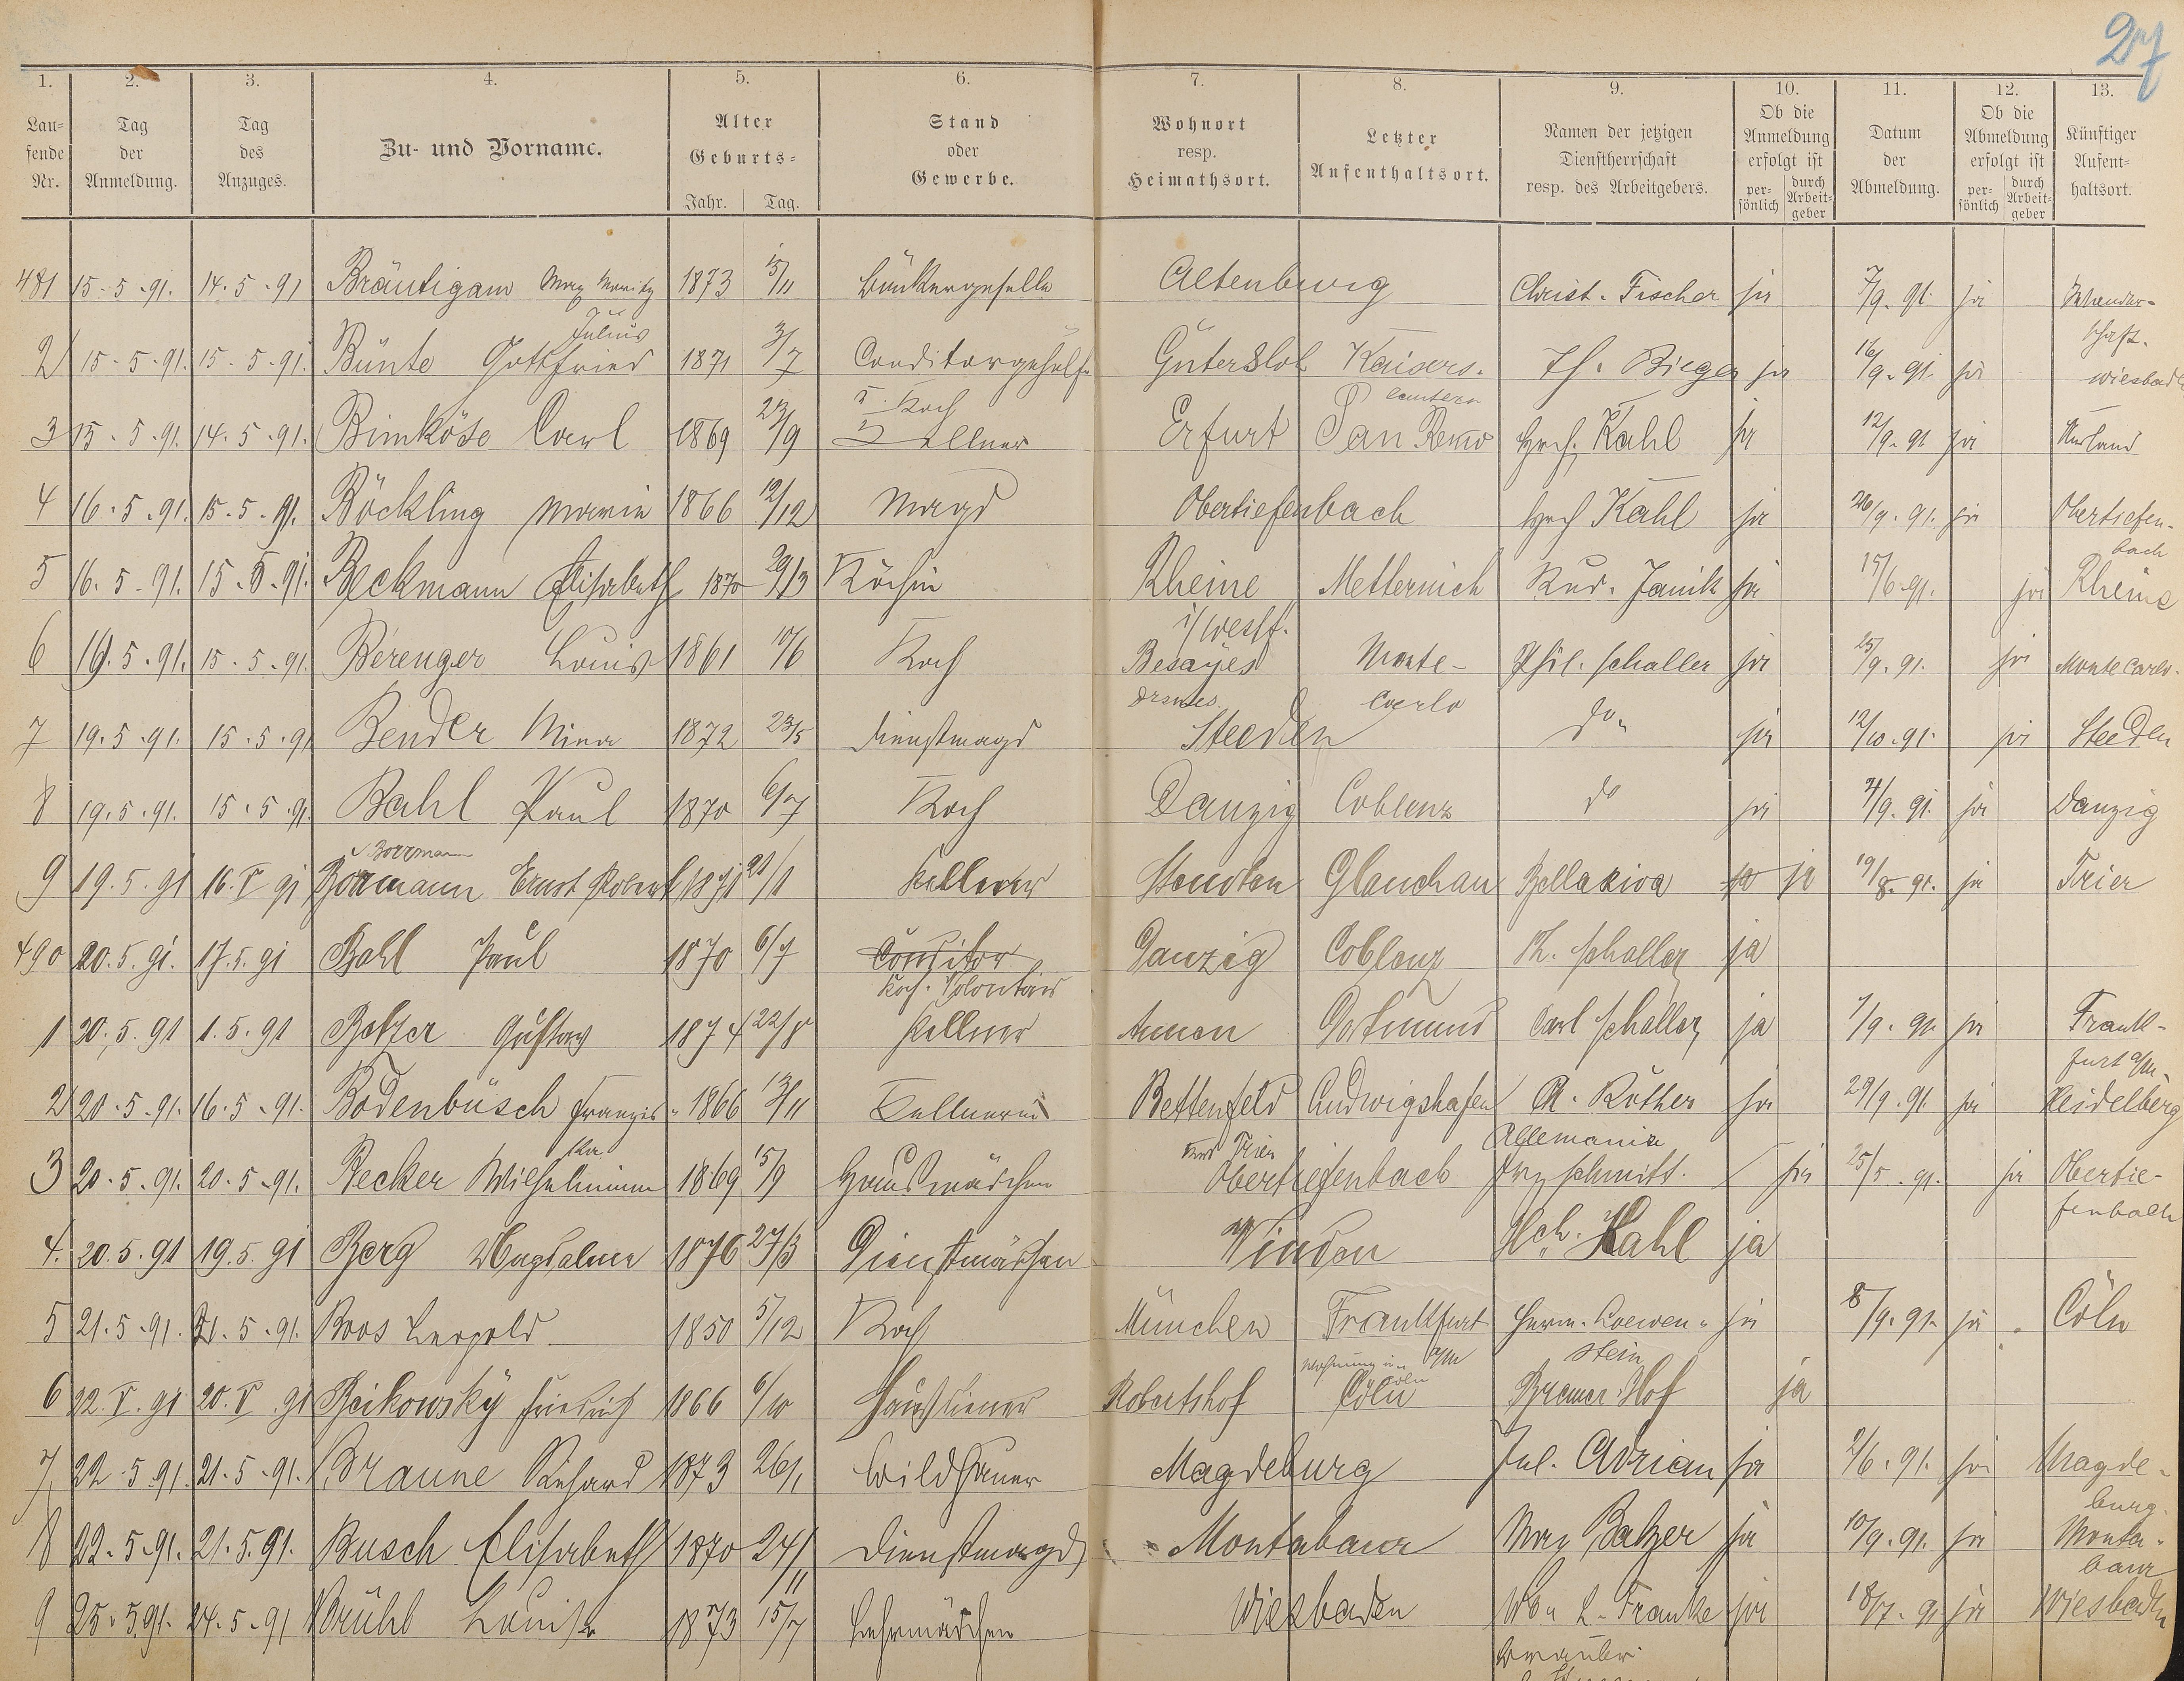 27
1. 2. 3. 4. 5. 6. 7. 8. 9. 10. 11. 12. 13.
Lau-fende Nr. Tag der Anmeldung. Tag des Anzuges. Zu- und Vorname. Alter Geburts- Jahr. Tag. Stand oder Gewerbe. Wohnort resp. Heimathsort. Letzter Aufenthaltsort. Namen der jetzigen Dienstherrschaft resp. des Arbeitgebers. Ob die Anmeldung erfolgt ist per-sönlich durch Arbeit-geber Datum der Abmeldung. Ob die Abmeldung erfolgt ist per-sönlich durch Arbeit-geber Künftiger Aufent-haltsort.
481 15-5-91. 14.5.91 Bräutigam Max Moritz 1873 15/11 Altenburg Christ. Fischer ja 7/9.91. ja Wander-schaft.
2 15-5-91. 15-5-91. Bünte Gottfried Julius 1871 3/7 Conditorgehülfe Gütersloh Kaisers-lautern Th. Rieger ja 16/9.91. ja Wiesbaden
3 15.5.91. 14.5.91. Bimköse Carl 1869 23/9 Koch Kellner Erfurt San Remo Hch. Kahl ja 12/9.91 ja
4 16.5.91. 15.5.91. Böckling Maria 1866 12/12 Magd Obertiefenbach Hch Kahl ja 26/9.91. ja Obertiefen-bach
5 16.5.91. 15.5.91. Beckmann Elisabeth 1870 29/3 Köchin Rheine i/Westf. Metternich Rud. Janik ja 15/6.91. ja Rheine
6 19.5.91. 15.5.91. Bérenger Louis 1861 10/6 Koch Besayes Monte-Carlo Phil. Schaller ja 25/9.91. ja Monte Carlo.
7 19.5.91. 15.5.91 Bender Mina 1872 23/5 Dienstmagd Steeden do ja 12/10.91. ja Steeden
8 19.5.91. 15.5.91 Bahl Paul 1870 6/7 Koch Danzig Coblenz do ja /9.91. ja Danzig
9 19.5.91 16.V 91 Bormann Borrmann Ernst Robert 1871 21/1 Kellner Glauchau Bellariva ja ja 19/8.91. ja Trier
490 20.5.91. 17.5.91 Bahl Paul 1870 6/7 Conditor Koch. Volontair Danzig Coblenz Ph. Schaller ja
1 20.5.91 1.5.91 Betzer Gustav 1874 22/8 Kellner Annen Dortmund Carl Schaller ja 1/9.91 ja Frank-furt a/M.
2 20.5.91. 16.5.91. Bodenbüsch Franzis-ka 1866 13/11 Kellnerin Bettenfeld Ludwigshafen Ch. Röther Allemania ja 29/9.91. ja Heidelberg
3 20.5.91. 20.5.91. Becker Wilhelmine 1869 15/9 Hausmädchen Obertiefenbach Frz Schmitt. ja 25/5.91. ja Obertie-fenbach
4. 20.5.91 19.5.91 Berg Magdalena 1876 27/3 Dienstmädchen Winden Hch. Kahl ja
5 21.5.91. 21.5.91. Boos Leopold 1850 5/12 Koch München Frankfurt a/M Herm. Loewen-stein ja 8/9.91. ja Cöln
6 22.V.91 20.V.91 Beikowsky Friedrich 1866 6/10 Hausdiener Robertshof Wohnung in Cöln Cöln Bremer Hof ja
7, 22.5.91. 21.5.91. Braune Richard 1873 26/1 Bildhauer Magdeburg Jul. Adrian ja 2/6.91. ja Magde-burg.
8 22.5.91. 21.5.91. Busch Elisabeth 1870 24/11 Dienstmagd Montabaur Max Balzer ja 10/9.91. ja Monta-baur
9 25.5.91. 24.5.91 Brühl Louise 1873 15/7 Lehrmädchen Wiesbaden Wb. L. Franke ja 18/7.91 ja Wiesbaden